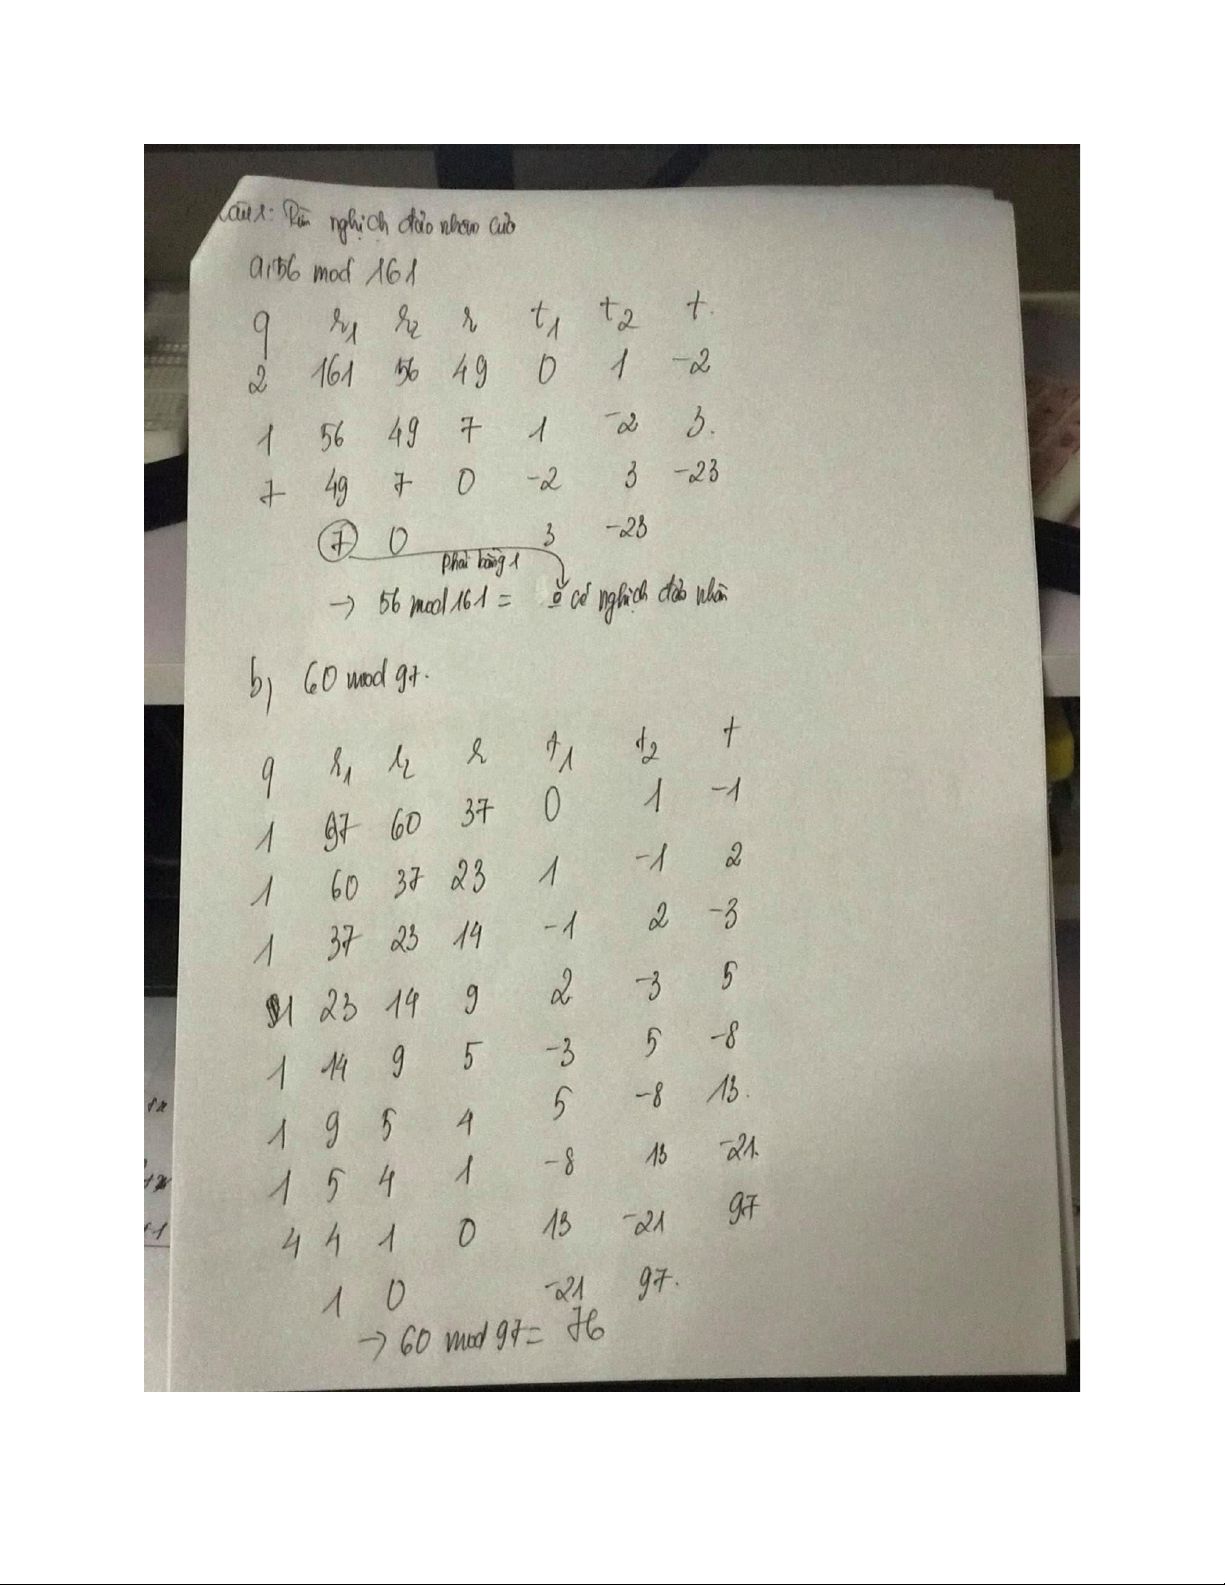 Câu 1: Tìm nghịch đảo nhân của
a, 56 mod 161
q r1 r2 r t1 t2 t.
2 161 56 49 0 1 -2
1 56 49 7 1 -2 3.
7 49 7 0 -2 3 -23
7 0 3 -23
phải bằng 1
→ 56 mod 161 = ko có nghịch đảo nhân
b, 60 mod 97.
q r1 r2 r t1 t2 t
1 97 60 37 0 1 -1
1 60 37 23 1 -1 2
1 37 23 14 -1 2 -3
1 23 14 9 2 -3 5
1 14 9 5 -3 5 -8
1 9 5 4 5 -8 13.
1 5 4 1 -8 13 -21.
4 4 1 0 13 -21 97
1 0 -21 97.
→ 60 mod 97 = 76